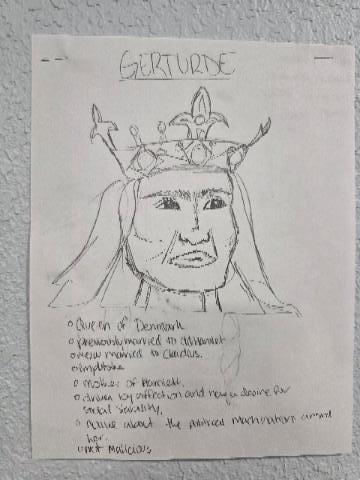 GERTURDE
Queen of Denmark
previously married to old Hamlet
new married to Claudius.
mother of Hamlett,
driven by affection and a desire for
social stability,
naive about the political machinations around
her.
not Malicious